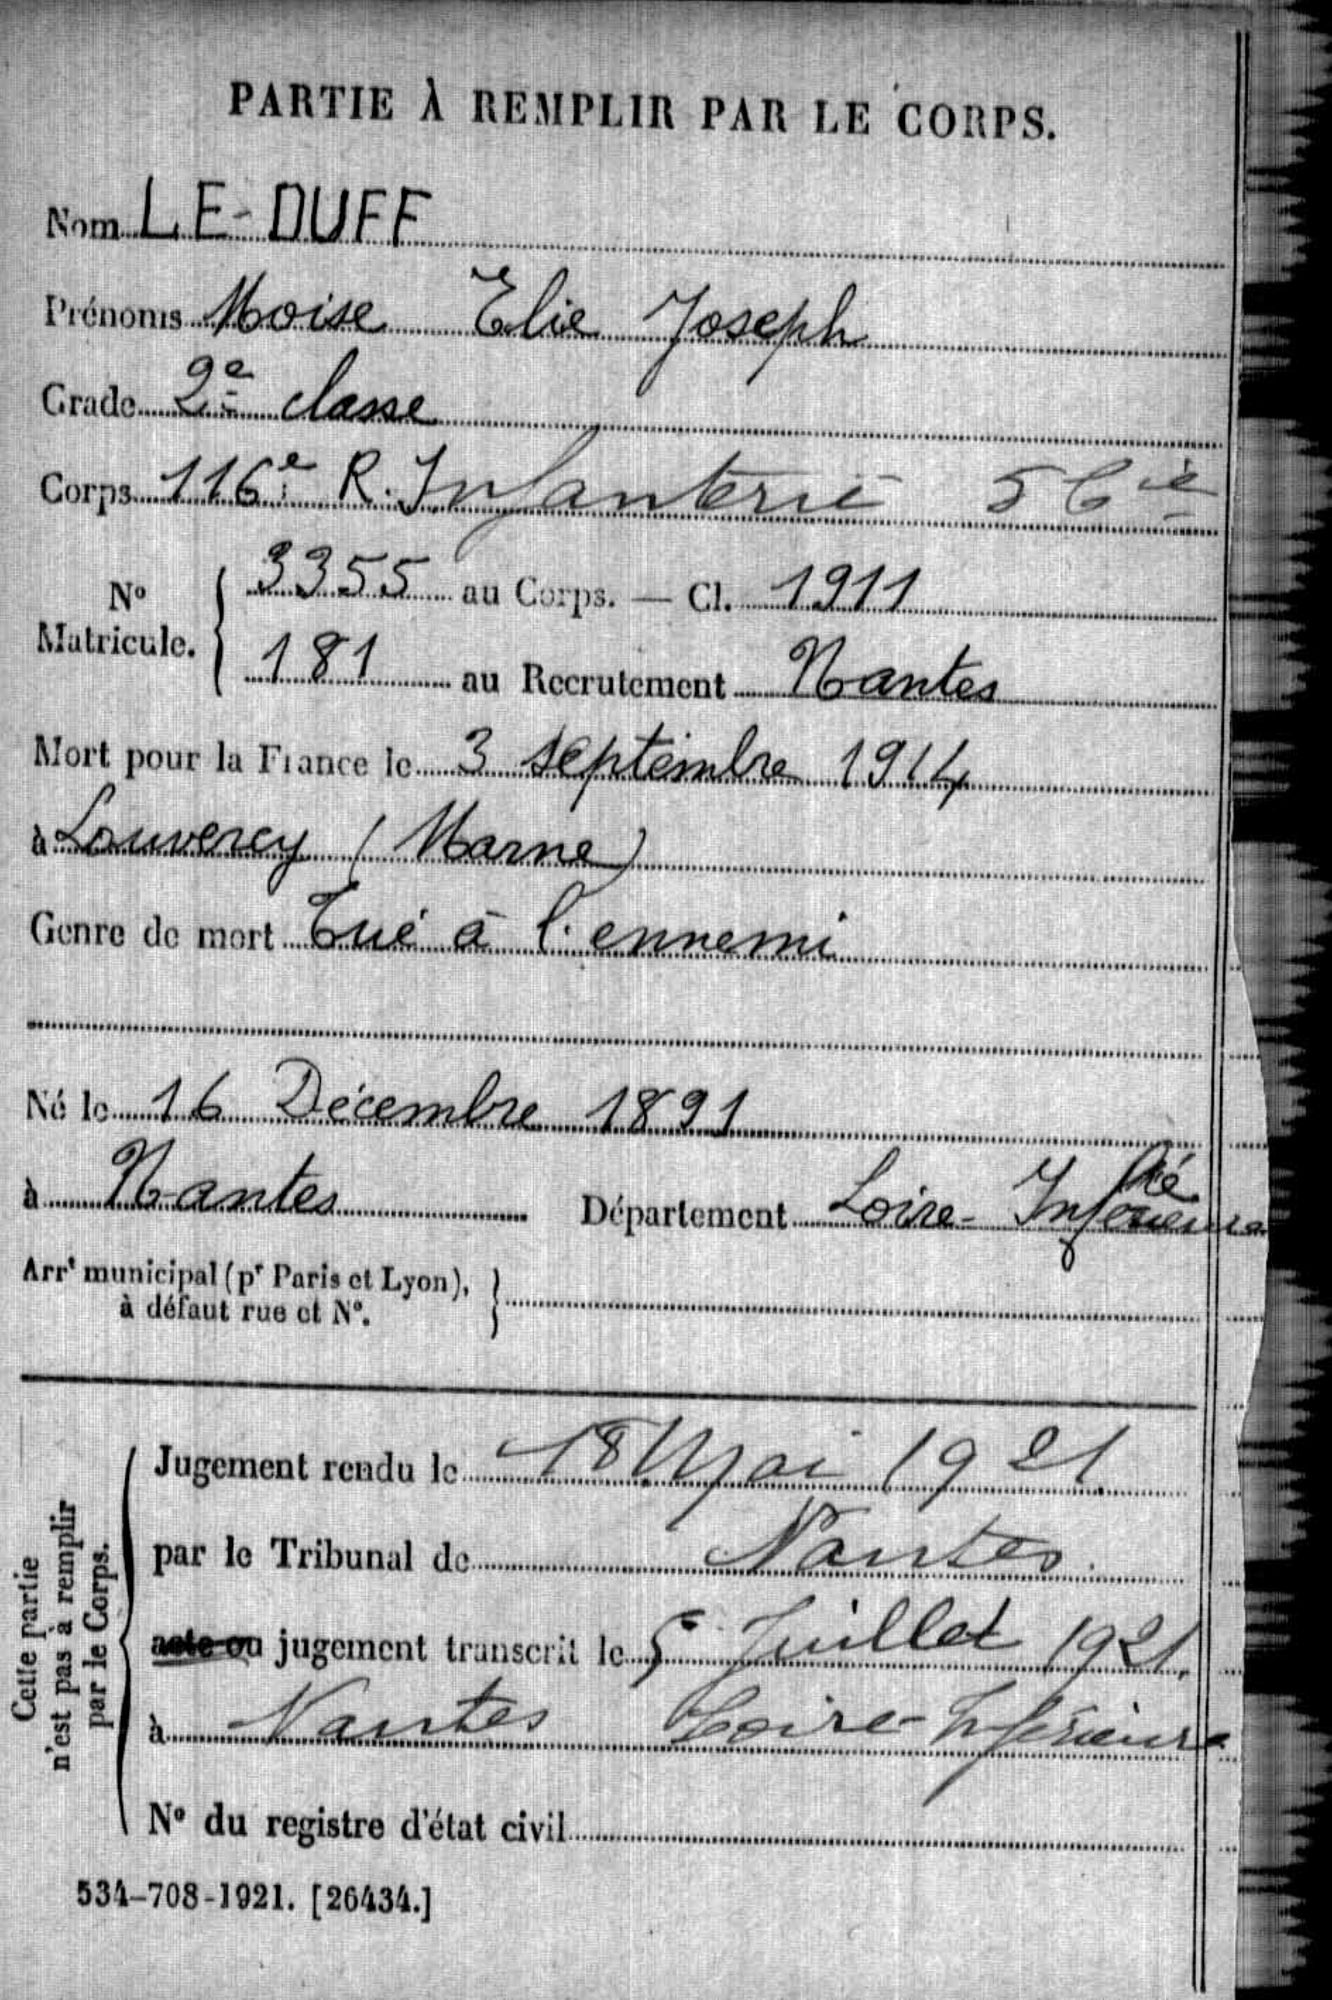 PARTIE À REMPLIR PAR LE CORPS.
Nom LE-DUFF
Prénoms Moise Elie Joseph
Grade 2e classe
Corps 116e R. Infanterie 5 Cie
No Matricule. { 3355 au Corps. — Cl. 1911
181 au Recrutement Nantes
Mort pour la France le 3 septembre 1914
à Louvercy (Marne)
Genre de mort Tué à l'ennemi
Né le 16 Décembre 1891
à Nantes Département Loire-Inférieure
Arrt municipal (pr Paris et Lyon),
à défaut rue et No.
Cette partie
n'est pas à remplir
par le Corps.
Jugement rendu le 18 Mai 1921
par le Tribunal de Nantes.
acte ou jugement transcrit le 5 Juillet 1921.
à Nantes Loire-Inférieure
No du registre d'état civil
534-708-1921. [26434.]